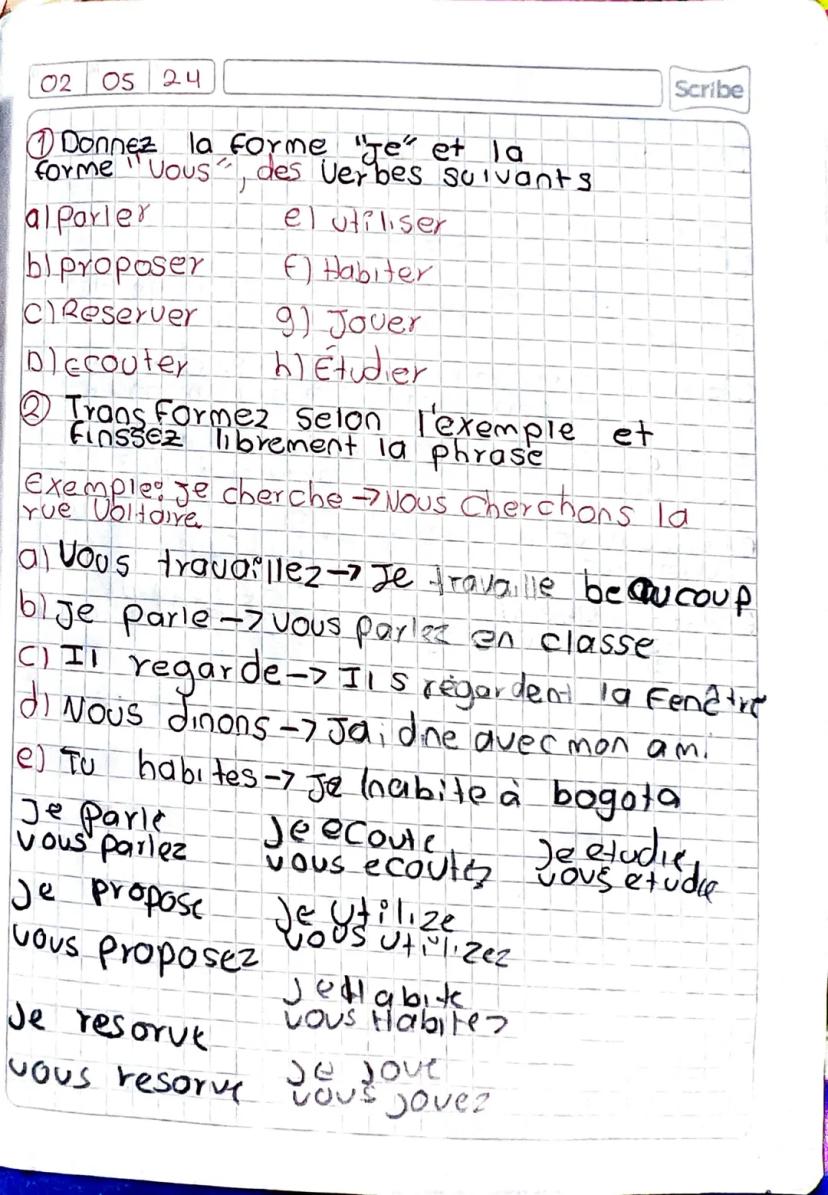 02 05 24
Scribe
① Donnez la forme "Je" et la
forme "Vous", des verbes suivants
a) Parler e) utiliser
b) proposer f) Habiter
c) Reserver g) Jouer
D) Ecouter h) Étudier
② Transformez selon l'exemple et
finssez librement la phrase
Exemple: Je cherche → Nous cherchons la
rue Voltaire
a) Vous travaillez → Je travaille beaucoup
b) Je parle → vous parlez en classe
c) Il regarde → Ils regardent la Fenêtre
d) Nous dinons → Jai dne avec mon ami
e) Tu habites → Je habite à bogota
Je parle Je ecoute Je etudie
vous parlez vous ecoutez vous etudie
Je propose Je utilize
vous proposez vous utilizez
Je Habite
Je resorve vous Habitez
vous resorve Je Joue
vous Jouez